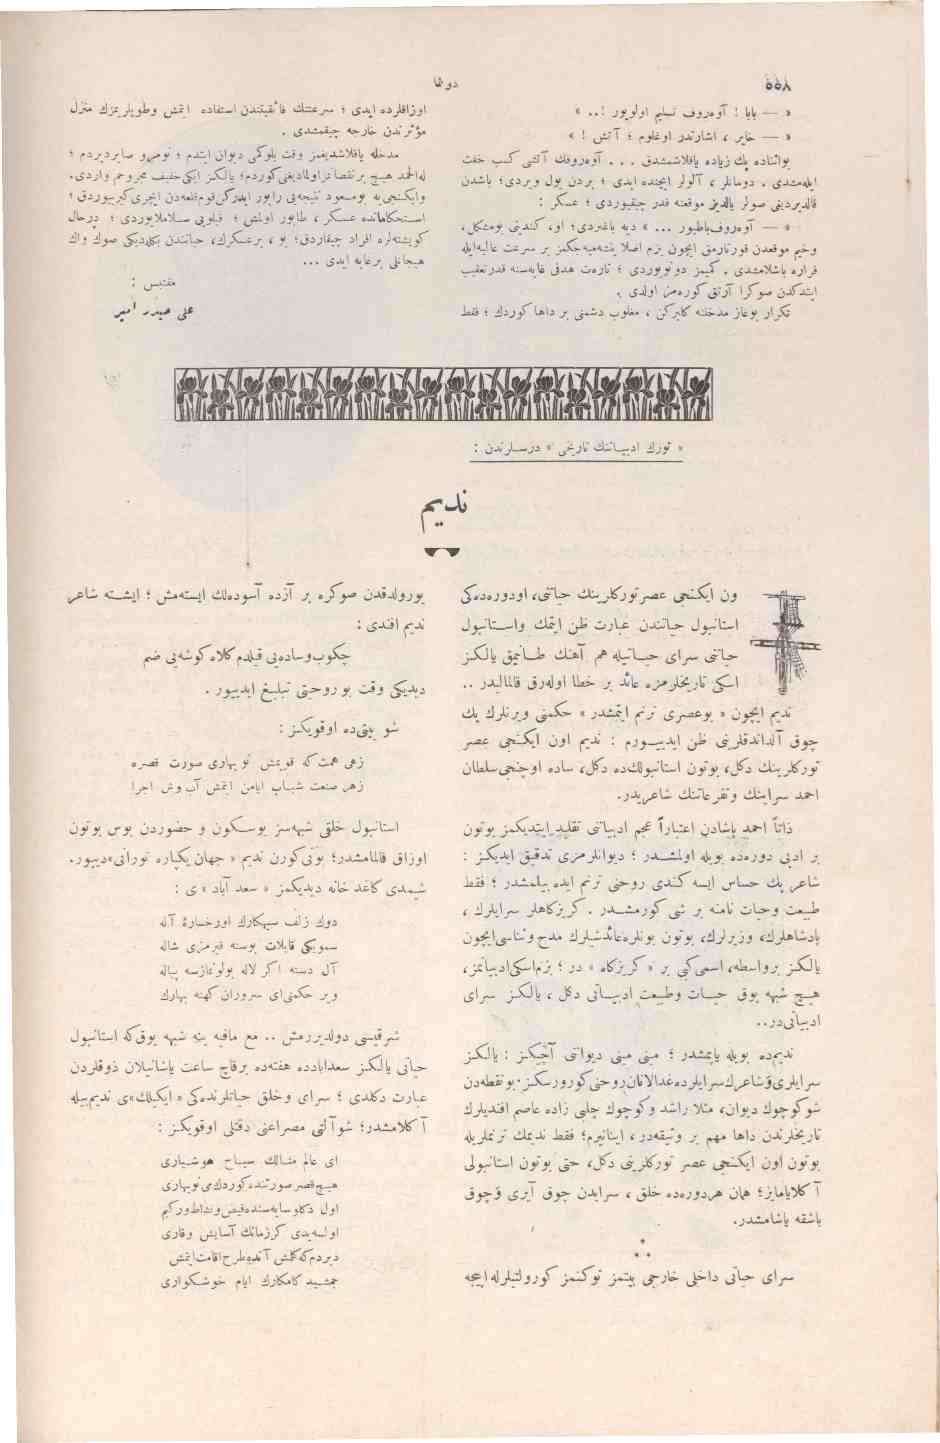 ٥٥٨
دونما
« — بابا ! آوەروف تسليم اولويور !.. »
« — خاير ، اشارتدر اوغلوم ؛ آتش ! »
بواثناده پك زياده ياقلاشمشدق . . . آوەروفك آتشى كسب خفت
ايله‌مشدى . دومانلر ، آلولر ايچنده ايدى ؛ بردن يول ويردى؛ باشدن
قالديرديغى صولر يالديز موقعنه قدر چيقيوردى ؛ عسكر :
« — آوەروف‌باطيور ... » ديه باغيردى؛ او، كندينى بومشكل،
وخيم موقعدن قورتارمق ايچون بزم اصلا يتشه‌ميه‌جكمز بر سرعت عاليه‌ايله
فراره باشلامشدى . كميمز دونويوردى ؛ تارەت هدفى غايه‌سنه قدرتعقيب
ايتدكدن صوكرا آرتق كوره‌مز اولدى .
تكرار بوغاز مدخلنه كليركن ، مغلوب دشمنى بر داها كوردك ؛ فقط
اوزاقلرده ايدى ؛ سرعتنك فائقيتندن استفاده ايتمش وطوپلريمزك منزل
مؤثرندن خارجه چيقمشدى .
مدخله ياقلاشديغمز وقت بلوكمى ديوان ايتدم ؛ نومرو صايديردم ؛
له‌الحمد هيچ برنقصانمزاولماديغنى‌كوردم؛ يالكز ايكى‌خفيف مجروحم واردى.
وايكنجى‌يه بومسعود نتيجه‌يى راپور ايدركن‌قوم‌قلعه‌دن ايچرى‌كيرييوردق ؛
استحكاماتده عسكر ، طابور اولمش ؛ فيلويى سلاملايوردى ؛ درحال
كوپشته‌لره افراد چيقاردق؛ بو ، برعسكرك، حياتندن بكله‌ديكى صوك واك
هيجانلى برغايه ايدى ...
مقتبس :
على حيدر امير
« تورك ادبياتنك تاريخى » درسلرندن :
نديم
ون ايكنجى عصرتوركلرينك حياتنى، اودوره‌ده‌كى
استانبول حياتندن عبارت ظن ايتمك واستانبول
حياتنى سراى حياتيله هم آهنك طانيمق يالكز
اسكى تاريخلرمزه عائد بر خطا اوله‌رق قالمالیدر ..
نديم ايچون « بوعصرى ترنم ايتمشدر » حكمنى ويرنلرك پك
چوق آلداندقلرينى ظن ايدييورم : نديم اون ايكنجى عصر
توركلرينك دكل، بوتون استانبولك‌ده دكل، ساده اوچنجى‌سلطان
احمد سراينك وتفرعاتنك شاعريدر.
ذاتاً احمد پاشادن اعتباراً عجم ادبياتنى تقليد ايتديكمز بوتون
بر ادبى دوره‌ده بويله اولمشدر ؛ ديوانلرمزى تدقيق ايديكز :
شاعر پك حساس ايسه كندى روحنى ترنم ايده بيلمشدر ؛ فقط
طبيعت وحيات نامنه بر شى كورمشدر . كريزكاهلر سرايلرك ،
پادشاهلرك، وزيرلرك، بوتون بونلره‌عائدشيلرك مدح وثناسى‌ايچون
يالكز برواسطه، اسمى‌كبى بر « كريزكاه » در ؛ بزم‌اسكى‌ادبياتمز،
هيچ شبهه يوق حيات وطبيعت ادبياتى دكل ، يالكز سراى
ادبياتى‌در..
نديم‌ده بويله ياپمشدر ؛ مينى مينى ديواننى آچيكز : يالكز
سرايلرى‌وشاعرك‌سرايلرده‌غدالانان‌روحنى‌كورورسكز. بونقطه‌دن
شوكوچوك ديوان، مثلا راشد وكوچوك چلبى زاده عاصم افنديلرك
تاريخلرندن داها مهم بر وثيقه‌در ، اينانيرم؛ فقط نديمك ترنملريله
بوتون اون ايكنجى عصر توركلرينى دكل، حتى بوتون استانبولى
آكلايامايز؛ همان هردوره‌ده خلق ، سرايدن چوق آيرى وچوق
باشقه ياشامشدر.
* * *
سراى حياتى داخلى خارجى بيتمز توكنمز كورولتيلرله ايجه
يورولدقدن صوكره بر آزده آسوده‌لك ايسته‌مش ؛ ايشته شاعر
نديم افندى :
چكوب‌وساده‌يى قيلدم كلاه كوشه‌يى ضم
ديديكى وقت بو روحنى تبليغ ايدييور .
شو بيتى‌ده اوقويكز :
زهى همت كه قويمش نوبهارى صورت قصره
زهر صنعت شباب ايامن ايتمش آب وش اجرا
استانبول خلقى شبهه‌سز بوسكون و حضوردن بوس بوتون
اوزاق قالمامشدر؛ بونى‌كورن نديم « جهان يكپاره نورانى»ديييور.
شيمدى كاغد خانه ديديكمز « سعد آباد » ى :
دوك زلف سيهكارك اورخسارهٔ آله
سموريكى قاپلات بوسنه قيرمزى شاله
آل دسته اكر لاله بولونمازسه پياله
وير حكمنى‌اى سروران كهنه بهارك
شرقيسى دولديررمش .. مع مافيه ينه شبهه يوق‌كه استانبول
حياتى يالكز سعداباده‌ده هفته‌ده برقاچ ساعت ياشانيلان ذوقلردن
عبارت دكلدى ؛ سراى وخلق حياتلرنده‌كى « ايكيلك»ى نديم‌بيله
آكلامشدر؛ شوآلتى مصراعنى دقتلى اوقويكز :
اى عالم مثالك سياح هوشيارى
هيچ‌قصر صورتنده‌كوردك‌مى‌نوبهارى
اول دكلوسايه‌سنده‌فيض‌ونشاط‌وركيم
اولسه‌يدى كرزمانك آسايش وقارى
ديردم‌كه‌كلمش آنده‌طرح‌اقامت‌ايتمش
جمشيد كامكارك ايام خوشكوارى